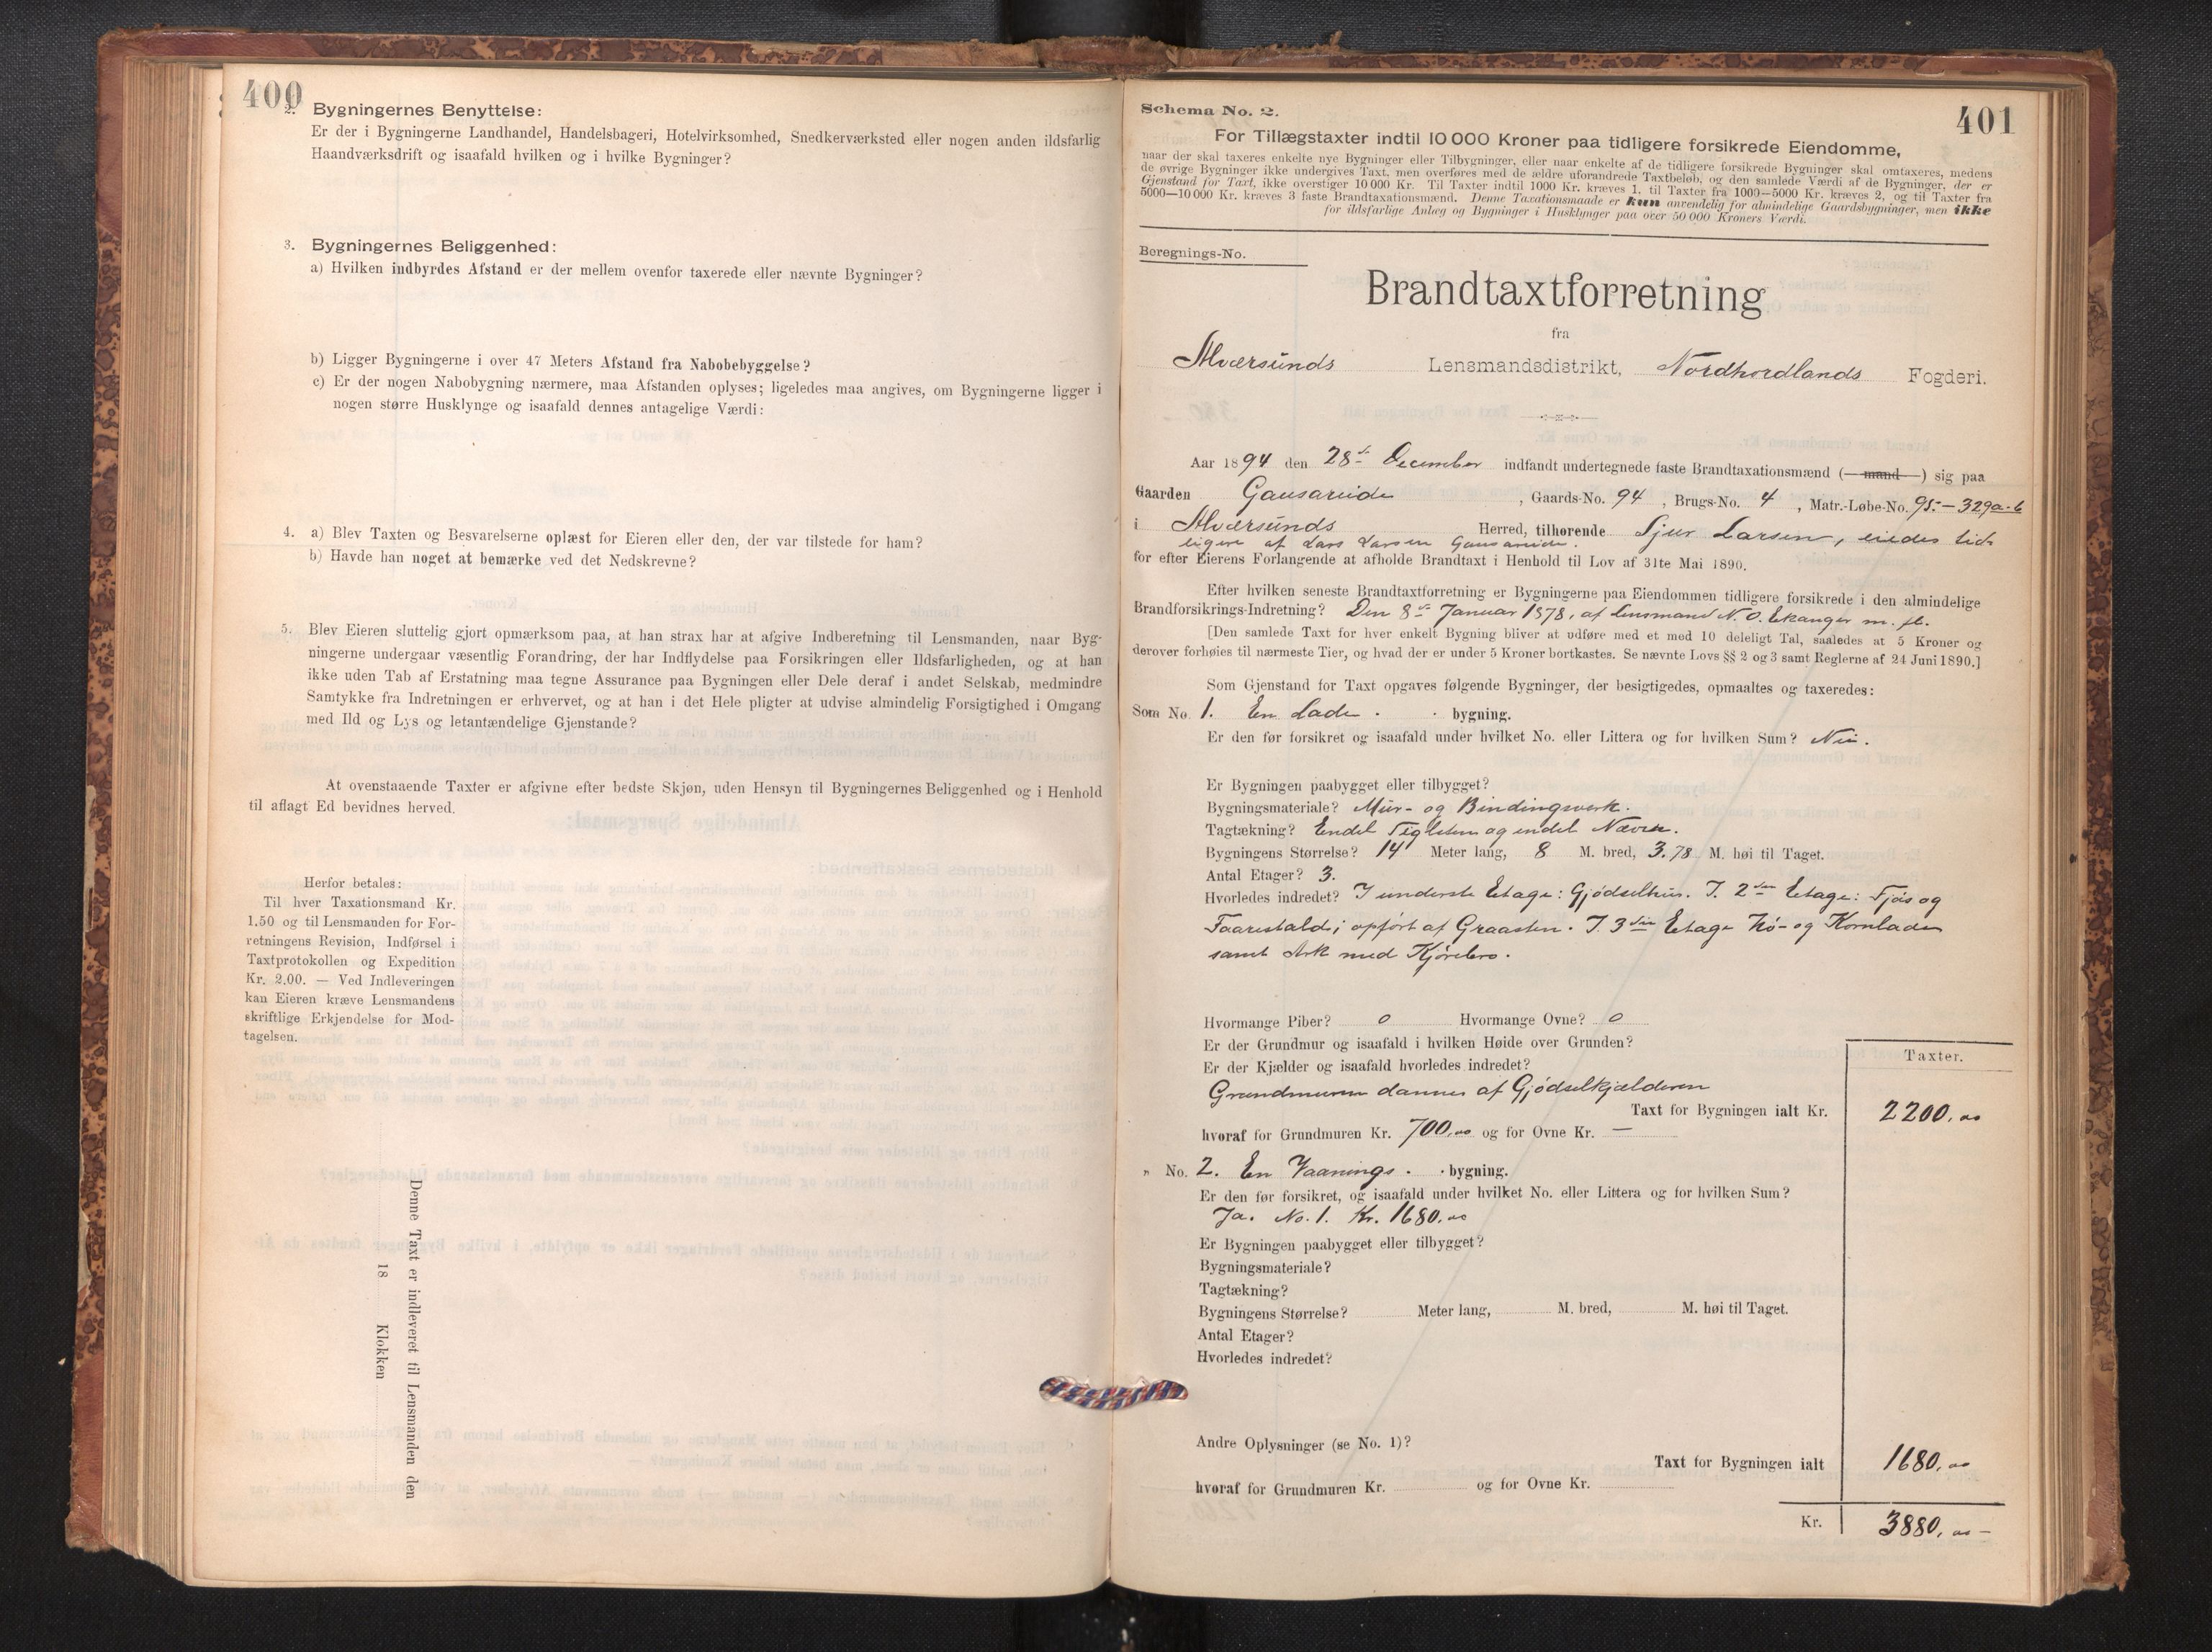 400
2. Bygningernes Benyttelse:
Er der i Bygningerne Landhandel, Handelsbageri, Hotelvirksomhed, Snedkerværksted eller nogen anden ildsfarlig
Haandværksdrift og isaafald hvilken og i hvilke Bygninger?
3. Bygningernes Beliggenhed:
a) Hvilken indbyrdes Afstand er der mellem ovenfor taxerede eller nævnte Bygninger?
b) Ligger Bygningerne i over 47 Meters Afstand fra Nabobebyggelse?
c) Er der nogen Nabobygning nærmere, maa Afstanden oplyses; ligeledes maa angives, om Bygningerne ligger i
nogen større Husklynge og isaafald dennes antagelige Værdi:
4. a) Blev Taxten og Besvarelserne oplæst for Eieren eller den, der var tilstede for ham?
b) Havde han noget at bemærke ved det Nedskrevne?
5. Blev Eieren sluttelig gjort opmærksom paa, at han strax har at afgive Indberetning til Lensmanden, naar Byg-
ningerne undergaar væsentlig Forandring, der har Indflydelse paa Forsikringen eller Ildsfarligheden, og at han
ikke uden Tab af Erstatning maa tegne Assurance paa Bygningen eller Dele deraf i andet Selskab, medmindre
Samtykke fra Indretningen er erhvervet, og at han i det Hele pligter at udvise almindelig Forsigtighed i Omgang
med Ild og Lys og letantændelige Gjenstande?
At ovenstaaende Taxter er afgivne efter bedste Skjøn, uden Hensyn til Bygningernes Beliggenhed og i Henhold
til aflagt Ed bevidnes herved.
Herfor betales:
Til hver Taxationsmand Kr.
1.50 og til Lensmanden for For-
retningens Revision, Indførsel i
Taxtprotokollen og Expedition
Kr. 2.00. — Ved Indleveringen
kan Eieren kræve Lensmandens
skriftlige Erkjendelse for Mod-
tagelsen.
Denne Taxt er indleveret til Lensmanden den
18 Klokken
401
Schema No. 2.
For Tillægstaxter indtil 10 000 Kroner paa tidligere forsikrede Eiendomme,
naar der skal taxeres enkelte nye Bygninger eller Tilbygninger, eller naar enkelte af de tidligere forsikrede Bygninger skal omtaxeres, medens
de øvrige Bygninger ikke undergives Taxt, men overføres med de ældre uforandrede Taxtbeløb, og den samlede Værdi af de Bygninger, der er
Gjenstand for Taxt, ikke overstiger 10 000 Kr. Til Taxter indtil 1000 Kr. kræves 1, til Taxter fra 1000—5000 Kr. kræves 2, og til Taxter fra
5000—10 000 Kr. kræves 3 faste Brandtaxationsmænd. Denne Taxationsmaade er kun anvendelig for almindelige Gaardsbygninger, men ikke
for ildsfarlige Anlæg og Bygninger i Husklynger paa over 50 000 Kroners Værdi.
Beregnings-No.
Brandtaxtforretning
fra
Alværsunds Lensmandsdistrikt, Nordhordlands Fogderi.
Aar 1894 den 28de December indfandt undertegnede faste Brandtaxationsmænd (— mand —) sig paa
Gaarden Gausareide, Gaards-No. 94, Brugs-No. 4, Matr.-Løbe-No. 95 — 329a-b
i Alværsunds Herred, tilhørende Sjur Larsen, eiedes tid-
ligere af Lars Larsen Gausareide.
for efter Eierens Forlangende at afholde Brandtaxt i Henhold til Lov af 31te Mai 1890.
Efter hvilken seneste Brandtaxtforretning er Bygningerne paa Eiendommen tidligere forsikrede i den almindelige
Brandforsikrings-Indretning? Den 8de Januar 1878, af Lensmand N. O. Ekanger m. fl.
[Den samlede Taxt for hver enkelt Bygning bliver at udføre med et med 10 deleligt Tal, saaledes at 5 Kroner og
derover forhøies til nærmeste Tier, og hvad der er under 5 Kroner bortkastes. Se nævnte Lovs §§ 2 og 3 samt Reglerne af 24 Juni 1890.]
Som Gjenstand for Taxt opgaves følgende Bygninger, der besigtigedes, opmaaltes og taxeredes:
Som No. 1. En Lade bygning.
Er den før forsikret og isaafald under hvilket No. eller Littera og for hvilken Sum? Nei.
Er Bygningen paabygget eller tilbygget?
Bygningsmateriale? Mur- og Bindingsverk.
Tagtækning? Endel Teglsten og endel Næver.
Bygningens Størrelse? 14 Meter lang, 8 M. bred, 3.78 M. høi til Taget.
Antal Etager? 3.
Hvorledes indredet? I underste Etage: Gjødselhus. I. 2den Etage: Fjøs og
Faarestald; opført af Graasten. I. 3die Etage Hø- og Kornlade
samt Ark med Kjørebro.
Hvormange Piber? 0 Hvormange Ovne? 0
Er der Grundmur og isaafald i hvilken Høide over Grunden?
Er der Kjælder og isaafald hvorledes indredet?
Grundmuren dannes af Gjødselkjælderen
Taxter.
Taxt for Bygningen ialt Kr. 2200,00
hvoraf for Grundmuren Kr. 700,00 og for Ovne Kr. —
" No. 2. En Vaanings bygning.
Er den før forsikret, og isaafald under hvilket No. eller Littera og for hvilken Sum?
Ja. No. 1. Kr. 1680.00
Er Bygningen paabygget eller tilbygget?
Bygningsmateriale?
Tagtækning?
Bygningens Størrelse? Meter lang, M. bred, M. høi til Taget.
Antal Etager?
Hvorledes indredet?
Andre Oplysninger (se No. 1)?
Taxt for Bygningen ialt 1680,00
hvoraf for Grundmuren Kr. og for Ovne Kr.
Kr. 3880,00 —